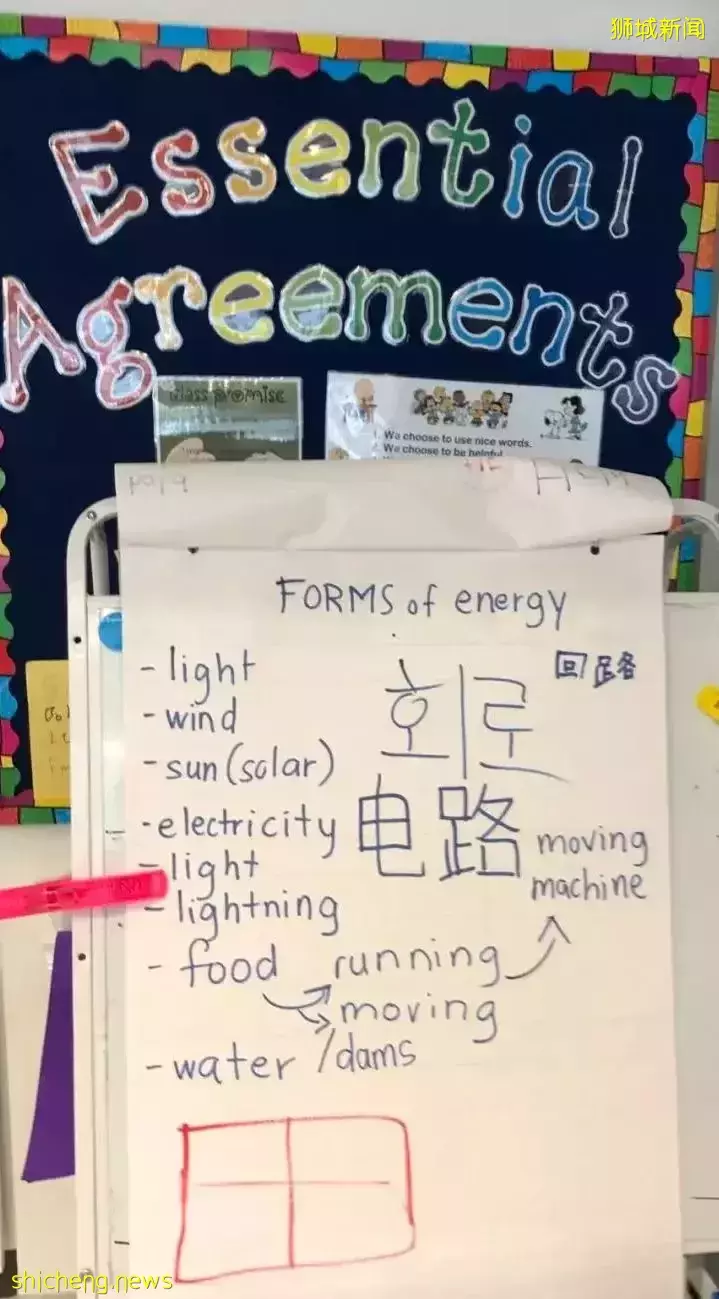 狮城新闻
Essential
Agreements
Class promise
We choose to use nice words.
We choose to be helpful
FORMS of energy
- light
回路
- wind
회로
- sun (solar)
- electricity
电路
moving
machine
- light
- lightning
- food
running
moving
- water /dams
shicheng.news